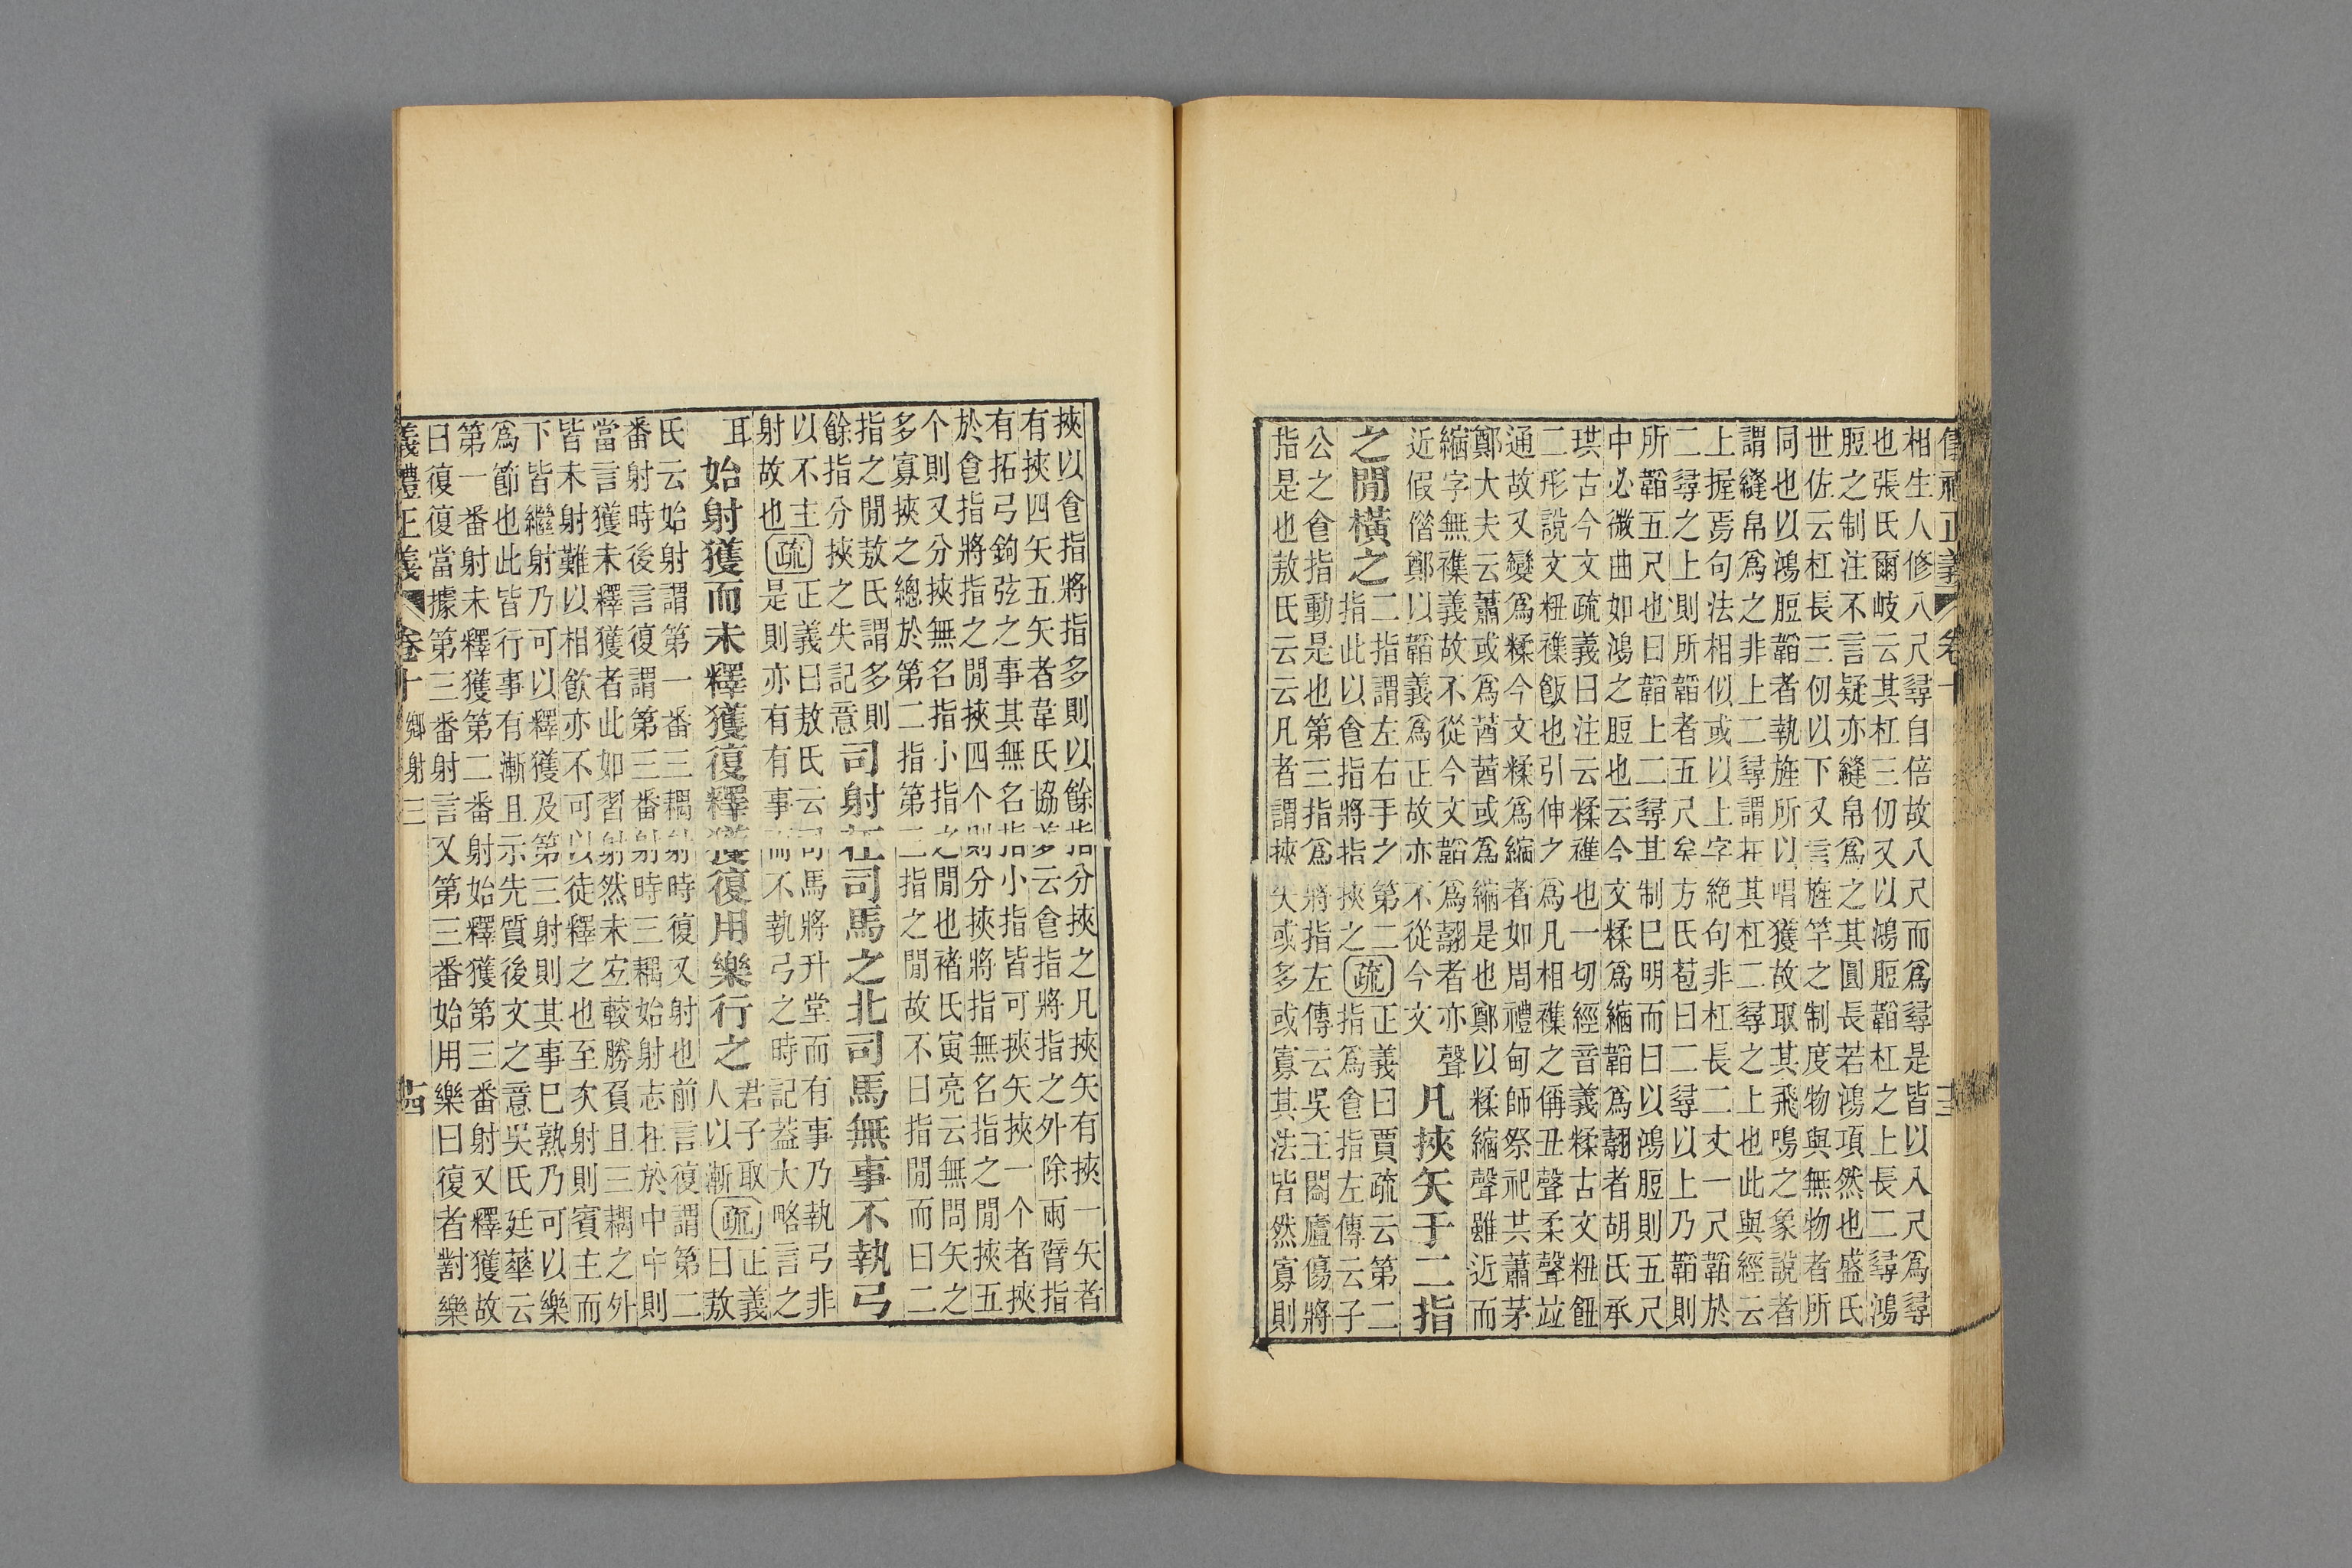 相生人修八尺尋自倍故八尺而爲尋是皆以入尺爲尋
也張氏爾岐云其杠三仞又以鴻脰韜杠之上長二尋鴻
脰之制注不言疑亦縫帛爲之其圓長若鴻項然也盛氏
世佐云杠長三仞以下又言旌竿之制度物與無物者所
同也以鴻脰韜者執旌所以唱獲故取其飛鳴之象說者
謂縫帛爲之非上二尋謂在其杠二尋之上也此與經云
上握焉句法相似或以上字絶句非杠長二丈一尺韜於
二尋之上則所韜者五尺矣方氏苞曰二尋以上乃韜則
所韜五尺也曰韜上二尋其制已明而曰以鴻脰則五尺
中必微曲如鴻之脰也云今文糅爲縮韜爲翿者胡氏承
珙古今文疏義曰注云糅雜也一切經音義糅古文粈䬦
二形說文粈雜飯也引伸之爲凡相雜之偁丑聲柔聲竝
通故又變爲糅今文糅爲縮者如周禮甸師祭祀共蕭茅
鄭大夫云蕭或爲莤莤或爲縮是也鄭以糅縮聲雖近而
縮字無雜義故不從今文韜爲翿者亦聲
近假借鄭以韜義爲正故亦不從今文　凡挾矢于二指
之閒橫之二指謂左右手之第二指此以食指將指挾之疏正義曰賈疏云第二指爲食指左傳云子
公之食指動是也第三指爲將指左傳云吳王闔廬傷將
指是也敖氏云云凡者謂挾矢或多或寡其法皆然寡則
挾以食指將指多則以餘指分挾之凡挾矢有挾一矢者
有挾四矢五矢者韋氏協夢云食指將指之外除兩臂指
有拓弓鉤弦之事其無名指小指皆可挾矢挾一个者挾
於食指將指之閒挾四个則分挾將指無名指之閒挾五
个則又分挾無名指小指之閒也褚氏寅亮云無問矢之
多寡挾之總於第二指第三指之閒故不曰指閒而曰二
指之閒敖氏謂多則餘指分挾之失記意司射在司馬之北司馬無事不執弓
以不主射故也疏正義曰敖氏云司馬將升堂而有事乃執弓非是則亦有有事而不執弓之時記葢大略言之
耳　始射獲而未釋獲復釋獲復用樂行之君子取人以漸疏正義曰敖
氏云始射謂第一番三耦射時復又射也前言復謂第二
番射時後言復謂第三番射時三耦始射志在於中中則
當言獲未釋獲者此如習射然未定較勝負且三耦之外
皆未射難以相飮亦不可以徒釋之也至次射則賓主而
下皆繼射乃可以釋獲及第三射則其事已熟乃可以樂
爲節也此皆行事有漸且示先質後文之意吳氏廷華云
第一番射未釋獲第二番射始釋獲第三番射又釋獲故
曰復復當據第三番射言又第三番始用樂曰復者對樂
儀禮正義　卷十　鄉射三